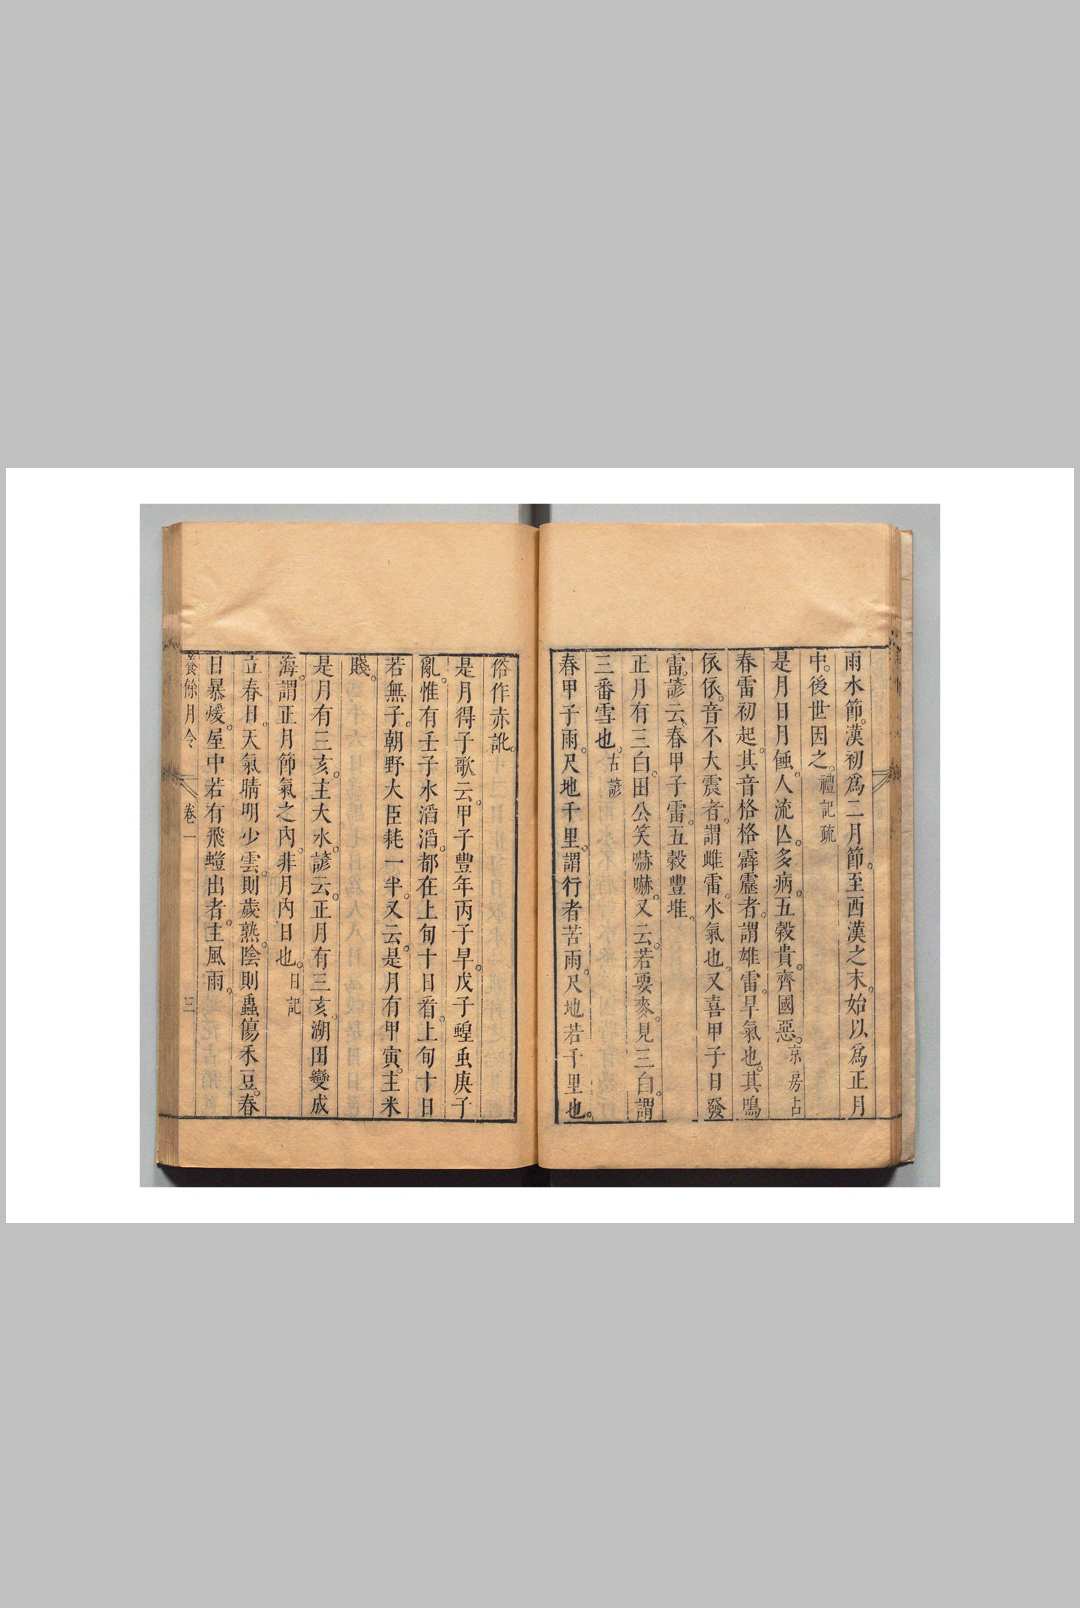 雨水節。漢初為二月節。至西漢之末。始以為正月
中。後世因之。禮記疏
是月日月蝕。人流亡。多病。五穀貴。齊國惡。京房占
春雷初起。其音格格霹靂者。謂雄雷。旱氣也。其鳴
依依。音不大震者。謂雌雷。水氣也。又喜甲子日發
雷。諺云。春甲子雷。五穀豐堆。
正月有三白。田公笑嚇嚇。又云。若要麥。見三白。謂
三番雪也。古諺
春甲子雨。尺地千里。謂行者苦雨。尺地若千里也。
俗作赤訛。
是月得子歌云。甲子豐年丙子旱。戊子蝗虫庚子
亂。惟有壬子水滔滔。都在上旬十日看。上旬十日
若無子。朝野大臣耗一半。又云。是月有甲寅。主米
賤。
是月有三亥。主大水。諺云。正月有三亥。湖田變成
海。謂正月節氣之內。非月內日也。日記
立春日。天氣晴明少雲。則歲熟。陰則蟲傷禾豆。春
日暴煖。屋中若有飛螘出者。主風雨。
養餘月令 卷一 三